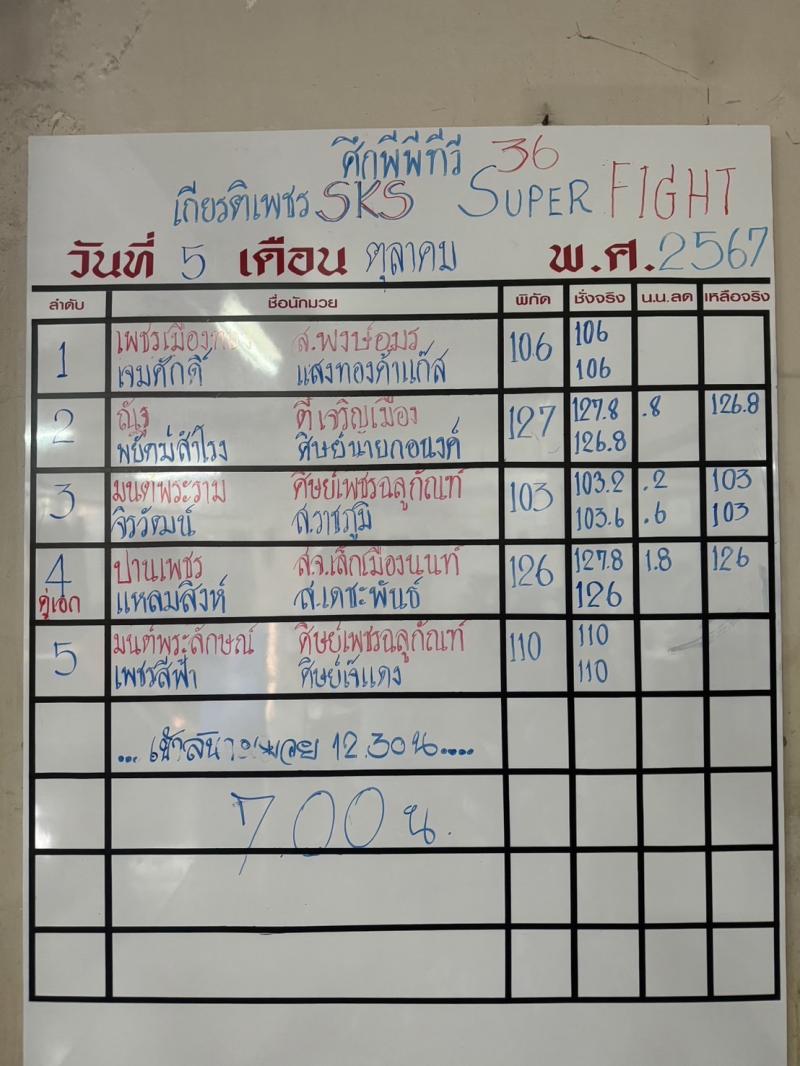 ศึกพีพีทีวี 36
เกียรติเพชร SKS SUPER FIGHT
วันที่ 5 เดือน ตุลาคม พ.ศ. 2567
ลำดับ ชื่อนักมวย พิกัด ชั่งจริง น.น.ลด เหลือจริง
1 เพชรเมือง ส.พงษ์อมร 106 106
เจมศักดิ์ แสงทองค้าแก๊ส 106
2 ณัฐ ตี๋เจริญเมือง 127 127.8 .8 126.8
พยัคฆ์สำโรง ศิษย์นายกอนงค์ 126.8
3 มนต์พระราม ศิษย์เพชรฉลูกัณฑ์ 103 103.2 .2 103
จิรวัฒน์ ส.ราชภูมิ 103.6 .6 103
4 ปานเพชร ส.จ.เล็กเมืองนนท์ 126 127.8 1.8 126
คู่เอก แหลมสิงห์ ส.เดชะพันธ์ 126
5 มนต์พระลักษณ์ ศิษย์เพชรฉลูกัณฑ์ 110 110
เพชรสีฟ้า ศิษย์เจ๊แดง 110
... เข้าสนามมวย 12.30 น.....
7.00 น.